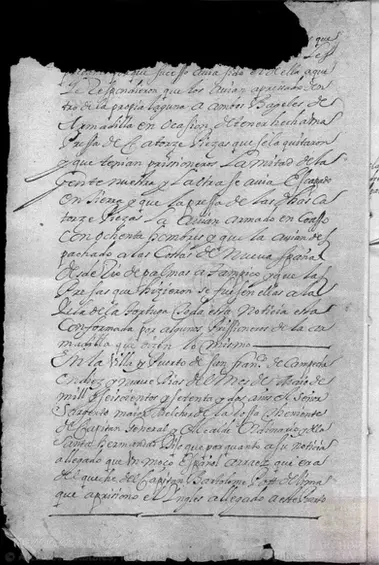 que
sucesso avia sido en ella a que
le Respondieron que los avia apresado den
tro de la propia laguna a ambos Bageles de
Armadilla en ocasion de tener hecha una
Presa de Catorze Piezas que se la quitaron
y que tenian prisioneros La mitad de la
gente nuestra y La otra se avia Escapado
en tierra y que la presa de las dhas Ca
torze Piezas La avian armado en Corso
con ochenta hombres y que la avian des
pachado a las Costas de Nueva España
de Rio de palmas a tampico y que las
Presas que hizieron se fuesen ellas a la
Isla de la tortuga toda esta Noticia esta
Conformada por algunos prissioneros de la ar
madilla que dizen lo mismo
En la Villa y Puerto de San Franco de Campeche
en diez y nueve dias del Mes de de
mill seiscientos y setenta y dos años el señor
Sargento maior Melchor de la theniente
de Capitan General y Alcalde hordinario y de la
Santa hermandad Dijo que por quanto a su noticia
a llegado que un moço Español arraez que era
del queche del Capitan Bartolome
que apriciono el Ingles a llegado a este Puerto